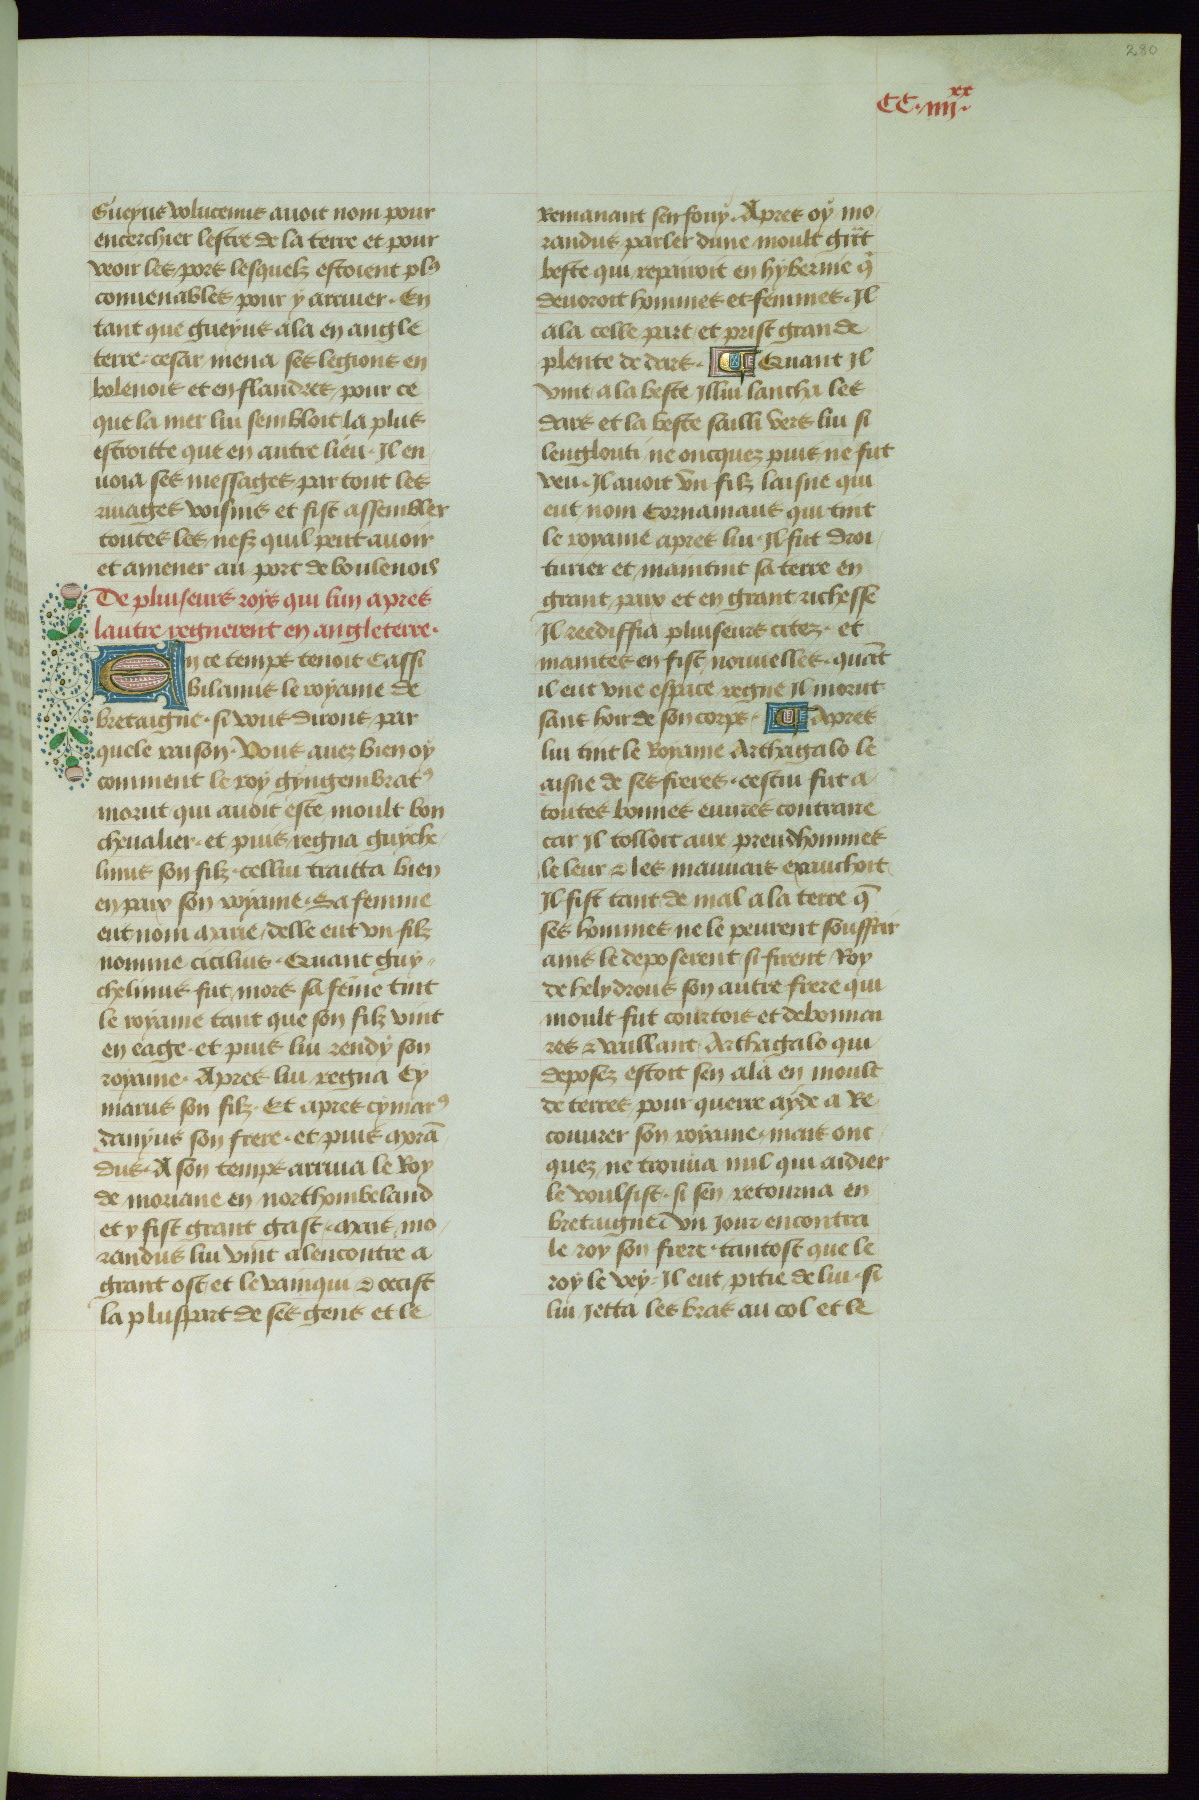 280
CC·iiij·xx
Gueyus volucenus auoit nom pour
encerchier lestre de la terre et pour
veoir les pors lesquelz estoient plꝰ
conuenables pour y arriuer · En
tant que gueyus ala en angle
terre · cesar mena ses legions en
bolenois et en flandres pour ce
que la mer lui sembloit la plus
estroitte que en autre lieu · Il en
uoia ses messages par tout les
riuages voisins et fist assembler
toutes les nefz quil peut auoir
et amener au port de boulenois
De pluiseurs roys qui lun apres
lautre regnerent en angleterre ·
En ce temps tenoit Cassi
bilamus le royame de
bretaigne · si vous dirons par
quele raison · Vous auez bien oy
comment le roy gyngembratꝰ
morut qui auoit este moult bon
cheualier · et puis regna guyche
linus son filz · cellui traitta bien
en paix son royame · Sa femme
eut nom marie / delle eut vn filz
nomme cicilius · Quant guy
chelinus fut mors sa fẽme tint
le royame tant que son filz vint
en eage · et puis lui rendy son
royame · Apres lui regna Cy
marus son filz · Et apres cymarꝰ
danyus son frere · et puis morã
dus · A son temps arriua le Roy
de moriane en northombeland
et y fist grant gast · mais mo
randus lui vint alencontre a
grant ost et le vainqui & occist
la pluspart de ses gens et le
Remanant sen fouy · Apres oy mo
randus parler dune moult grãt
beste qui repairoit en hybernie q̃
deuoroit hommes et femmes · Il
ala celle part et prist grande
plente de dars · Quant Il
vint a la beste Il lui lancha les
dars et la beste sailli vers lui si
lenglouti ne oncquez puis ne fut
veu · Il auoit vn filz laisne qui
eut nom Cornamaus qui tint
le royame apres lui · Il fut droi
turier et maintint sa terre en
grant paix et en grant richesse
Il reediffia pluiseurs citez · et
maintes en fist nouuelles · quãt
il eut vne espace regne Il morut
sans hoir de son corps · Apres
lui tint le Royame Arthagalo le
aisne de ses freres · cestui fut a
toutes bonnes euures contraire
car Il tolloit aux preudhommes
le leur & les mauuais exauchoit
Il fist tant de mal a la terre q̃
ses hommes ne le peurent souffrir
ains le deposerent si firent Roy
de helydrous son autre frere qui
moult fut courtois et debonnai
res & vaillant / Arthagalo qui
deposez estoit sen ala en moult
de terres pour querre ayde a Re
couurer son royame · mais onc
quez ne trouua nul qui aidier
le voulsist · si sen retourna en
bretaigne / vn Jour encontra
le roy son frere · tantost que le
roy le vey · Il eut pitie de lui · si
lui Jetta les bras au col et le